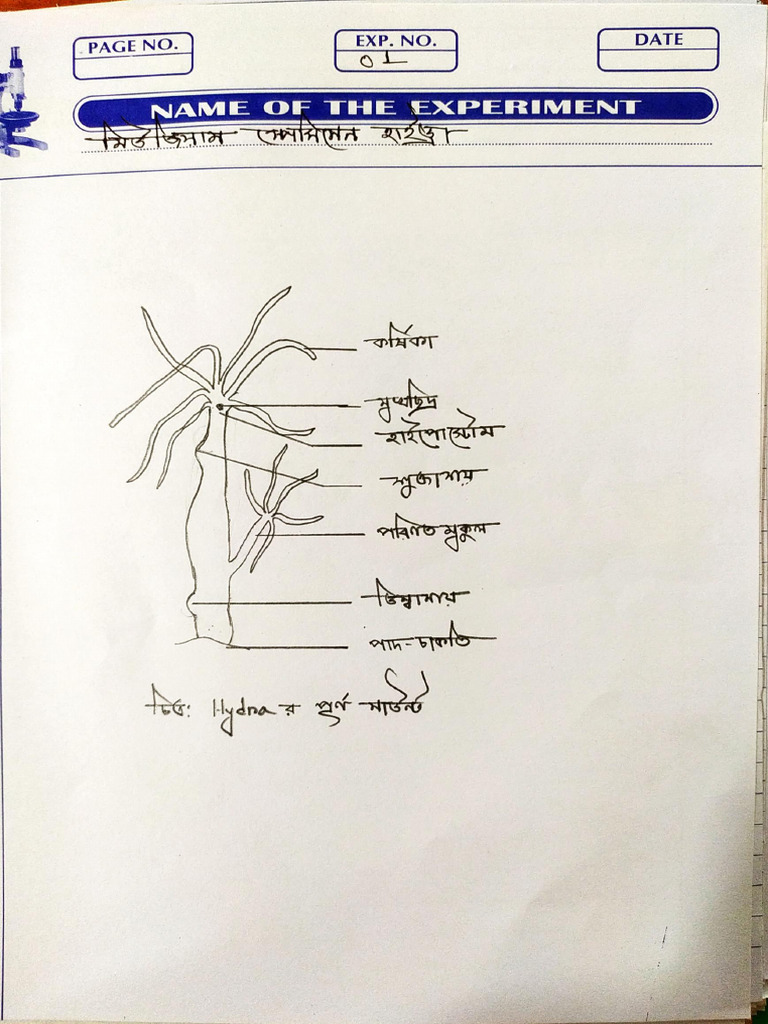 PAGE NO.
EXP. NO.
01
DATE
NAME OF THE EXPERIMENT
মিউজিয়াম স্পেসিমেন হাইড্রা
কর্ষিকা
মুখছিদ্র
হাইপোস্টোম
শুক্রাশয়
পরিণত মুকুল
ডিম্বাশয়
পাদ-চাকতি
চিত্র: Hydra র পূর্ণ মাউন্ট